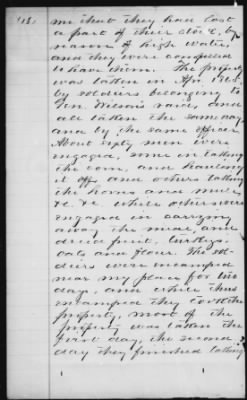 (15)
me that they had lost
a part of their store, by
reason of high water,
and they were compelled
to have them. The property
was taken in Apr. 1865
by soldiers belonging to
Gen. Wilson's raid, and
all taken the same day
and by the same officer.
About sixty men were
engaged, some in taking
the corn, and hauling
it off and others taking
the horses and mules,
&c &c. while others were
engaged in carrying
away the meat, and
dried fruit, turkeys,
oats and flour. The sol-
diers were encamped
near my place for two
days, and while thus
encamped they took the
property, most of the
property was taken the
first day, the second
day they finished taking